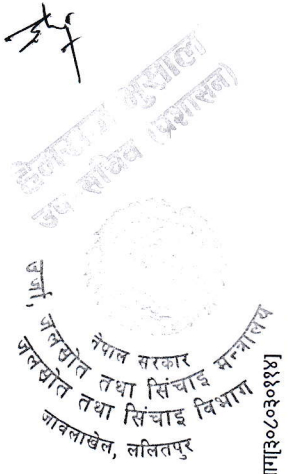 उप सचिव (प्रशासन)
नेपाल सरकार
उर्जा, जलस्रोत तथा सिंचाइ मन्त्रालय
जलस्रोत तथा सिंचाइ विभाग
जावलाखेल, ललितपुर